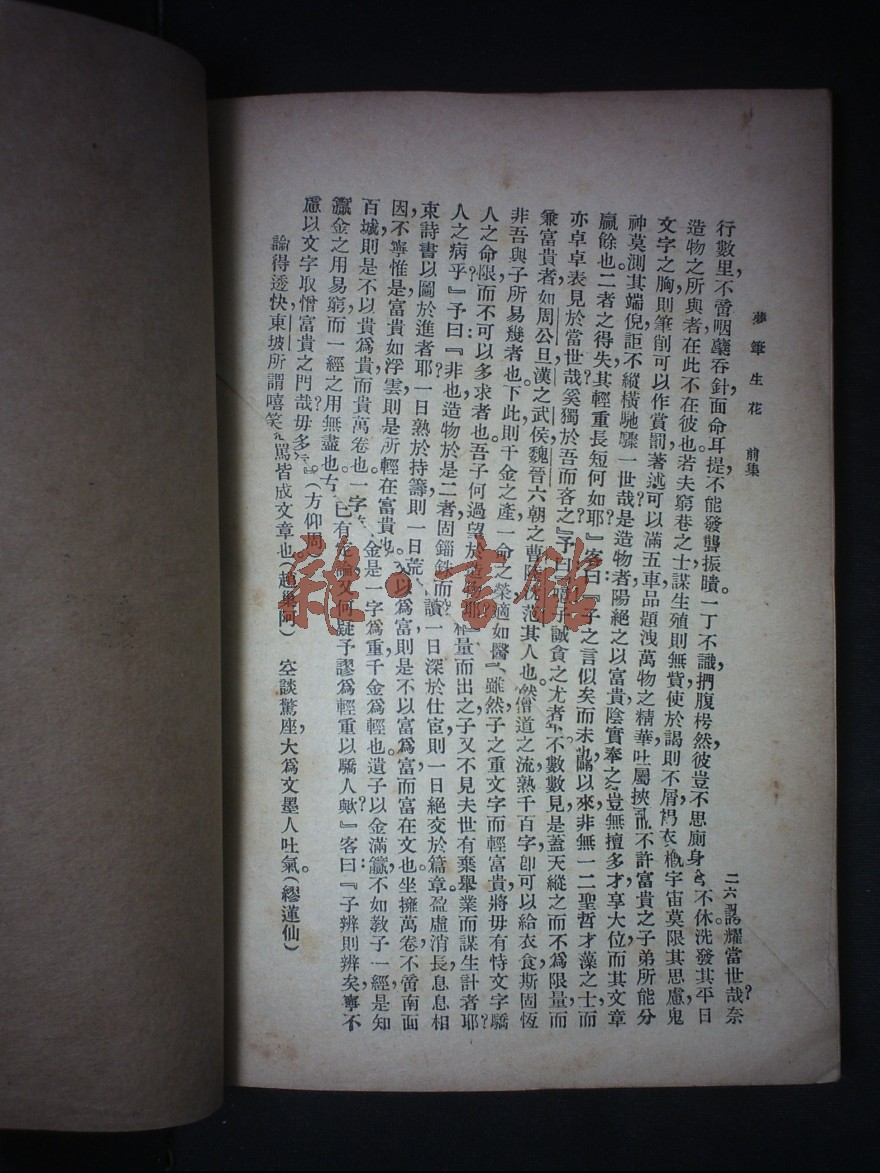 夢筆生花 前集
二六
行數里，不啻咽蘗吞針，面命耳提，不能發聾振聵。一丁不識，捫腹枵然，彼豈不思廁身 誇耀當世哉？奈
造物之所與者在此不在彼也。若夫窮巷之士，謀生殖則無貲，使於謁則不屑，
不休，洗發其平日
文字之胸，則筆削可以作賞罰，著述可以滿五車，品題洩萬物之精華，吐屬挾
宇宙莫限其思慮，鬼
神莫測其端倪，詎不縱橫馳驟一世哉？是造物者陽絕之以富貴，陰實奉之
不許富貴之子弟所能分
贏餘也。二者之得失，其輕重長短何如耶？』客曰：『子之言似矣而未也。
以來，非無一二聖哲才藻之士，而
豈無擅多才，享大位，而其文章
亦卓卓表見於當世哉？奚獨於吾而吝之？』予曰：『
子誠貪之尤者
不數數見，是蓋天縱之而不爲限量，而
兼富貴者，如周公旦，漢之武侯，魏晉六朝之曹
范其人也。然僧道之流，熟千百字，卽可以給衣食，斯固恆
非吾與子所易幾者也。下此則千金之產，一命之榮，適如
雖然，子之重文字而輕富貴，將毋有恃文字驕
人之命，限而不可以多求者也。吾子何過望於造物耶？』
人之病乎？』予曰：『非也。造物於是二者，固錙銖而
量而出之，子又不見夫世有棄舉業而謀生計者耶？
束詩書以圖於進者耶？一日熟於持籌，則一日荒
讀，一日深於仕宦，則一日絕交於篇章，盈虛消長，息息相
因，不寧惟是，富貴如浮雲，則是所輕在富貴也。
以爲富，則是不以富爲富，而富在文也。坐擁萬卷，不啻南面
百城，則是不以貴爲貴，而貴萬卷也。一字
金，是一字爲重，千金爲輕也。遺子以金滿籯，不如敎子一經，是知
籯金之用易窮，而一經之用無盡也。古
已有定論，又何疑予謬爲輕重以驕人歟？』客曰：『子辨則辨矣，寧不
慮以文字取憎富貴之門哉？毋多
。』（方仰周）
論得透快，東坡所謂嘻笑
罵皆成文章也。（趙巢阿）
空談驚座，大爲文墨人吐氣。（繆蓮仙）
雜·書館